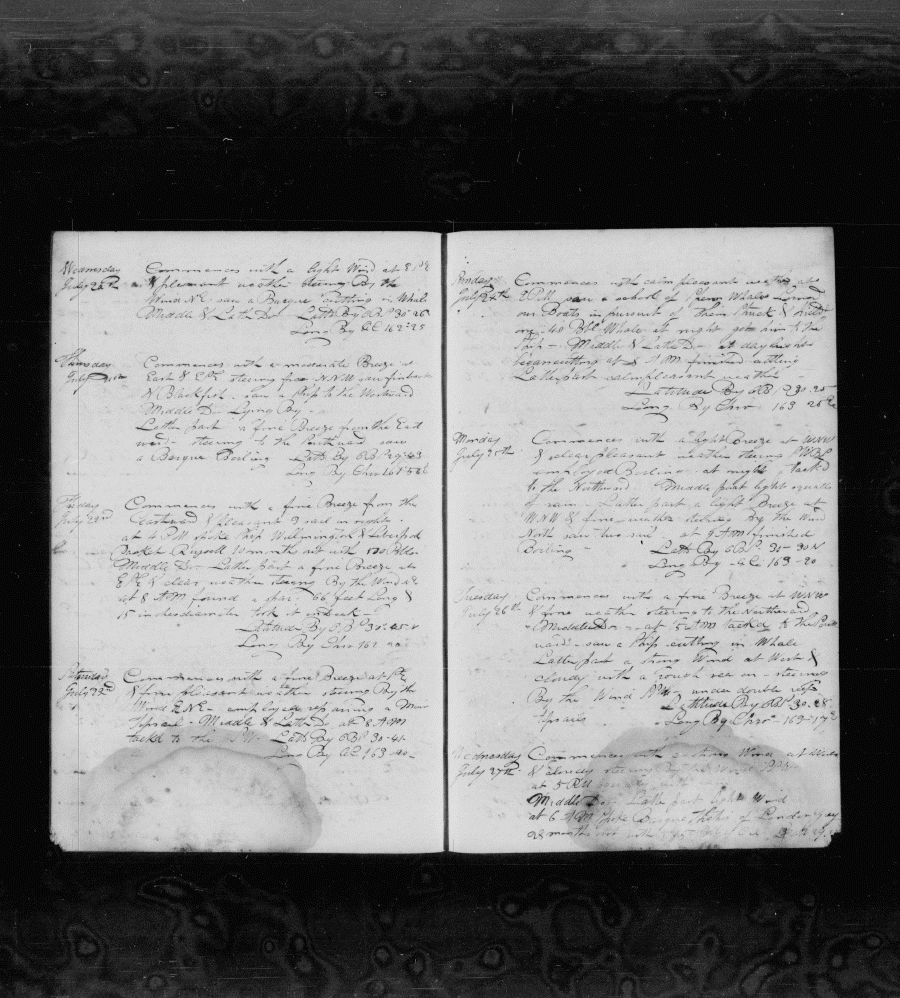 Wednesday Commences with a light Wind at
July 20th & pleasant weather steering By the
Wind NE saw a Barque Cutting in Whale
Middle & Latt Do Latt By OB 30-26
Long By CC 162-25
Thursday Commences with a moderate Breeze at
July 21st East & steering from NNW saw finback
& Blackfish. saw a Ship to the Westward
Middle D- Lying By -
Latter part a fine Breeze from the East
ward - steering to the Northward saw
a Barque Boiling Latt By OB 29-43
Long By Chro 161-52
Friday Commences with a fine Breeze from the
July 22nd Eastward & pleasant 2 sail in sight.
at 4 PM spoke Ship Walmington & Liverpool
Packet Russell 10 months out with 120 Bbls
Middle D- Latter part a fine Breeze at
& clear weather steering By the Wind
at 8 AM found a spar 66 feet Long &
15 inches diameter took it on deck -
Latitude By OB 30-45
Long By Chro 162
Saturday Commences with a fine Breeze at
July 23rd & fine pleasant weather steering By the
Wind ENE - employed repairing a Main
Topsail - Middle & Latt D- at 8 AM
tackd to the Latt By OB 30-41
Long By CC 163-20-
Sunday Commences with calm pleasant weather at
July 24th 2 PM saw a school of Sperm Whales
our Boats in pursuit of them Struck & killed
one 40 Bbl Whale at night got him to the
Ship - Middle & Latt D- at daylight
began cutting at 8 AM finished cutting
Latter part calm pleasant weather -
Latitude By OB 30-25
Long By Chro 163
Monday Commences with a light Breeze at WNW
July 25th & clear pleasant weather steering
employed Boiling. at night tackd
to the Northward Middle part light squalls
of rain Latter part a light Breeze at
WNW & fine weather steering By the Wind
North saw two sail at 9 AM finished
Boiling - Latt By OB 30-30 N
Long By CC 163-20
Tuesday Commences with a fine Breeze at WNW
July 26th & fine weather steering to the Northward
Middle D- at 5 AM tackd to the South
ward - saw a Ship cutting in Whale
Latter part a strong Wind at West &
cloudy with a rough sea on - steering
By the Wind under double reef
Topsails Latitude By OB 30-28
Long By Chro 163-17
Wednesday Commences with a strong Wind at
July 27th & cloudy steering
at 5 PM
Middle Do Latter part light Wind
at 6 AM spoke Barque of
28 months out with